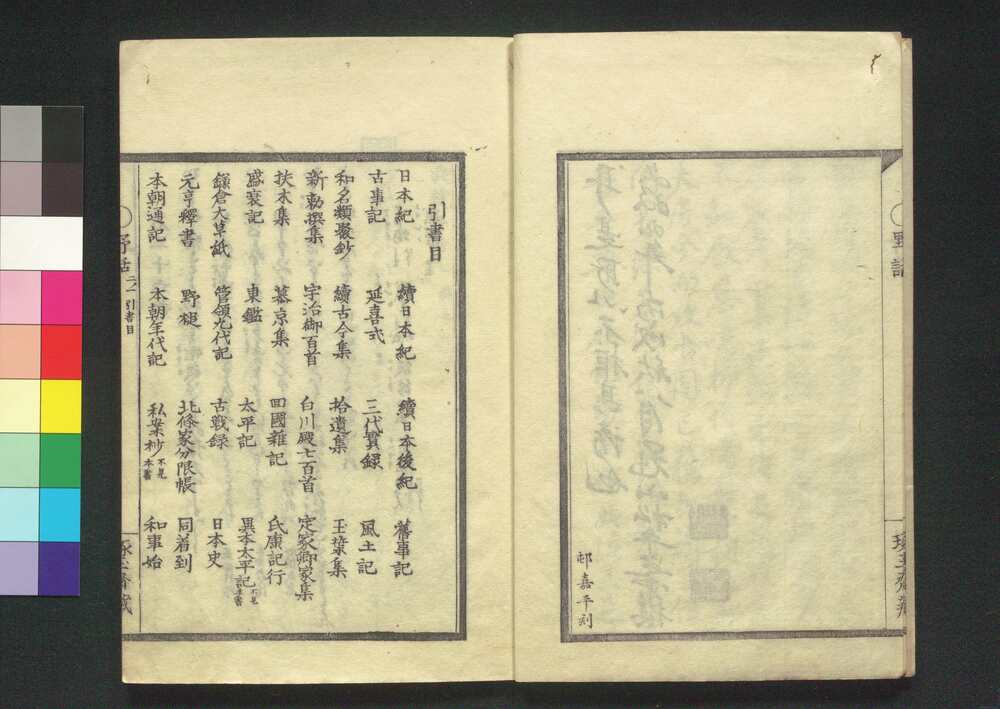 野話
邨嘉平刻
引書目
日本紀 續日本紀 續日本後紀 舊事記
古事記 延喜式 三代實録 風土記
和名類聚鈔 續古今集 拾遺集 玉葉集
新勅撰集 宇治御百首 白川殿七百首 定家卿家集
扶木集 慕京集 回國雜記 氏康記行
盛衰記 東鑑 太平記 異本太平記不見本書
鎌倉大草紙 管領九代記 古戰録 日本史
元亨釋書 野槌 北條家分限帳 同着到
本朝通記 本朝年代記 私案抄不見本書 和事始
野話 二ノ一 引書目